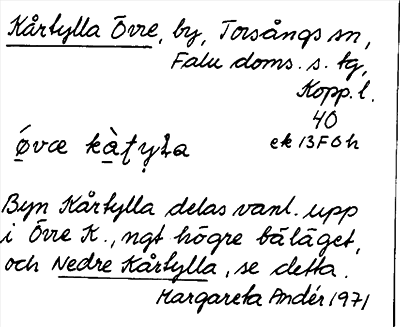 Kårtylla Övre, by, Torsångs sn,
Falu doms. s. tg,
Kopp. l.
40
ek 13F0h
Byn Kårtylla delas vanl. upp
i Övre K., ngt högre beläget,
och Nedre Kårtylla, se detta.
Margareta Andér 1971